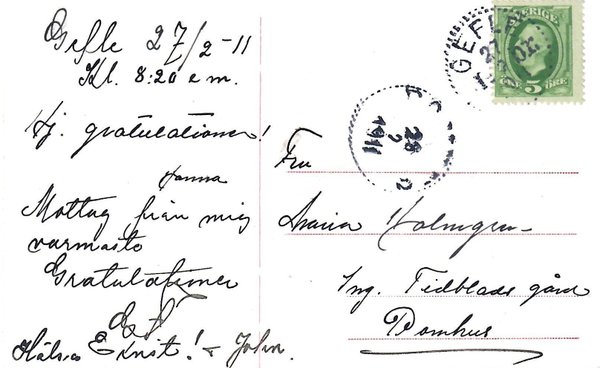 Gefle 27/2-11
Kl. 8:20 e m.
Hj. gratulationer!
Hanna
Mottag från mig
varmaste
Gratulationer
Hälsa Ernst! + John.
SVERIGE
5 ÖRE
GEFLE
27
28
2
1911
Fru
Maria Holmgren
Ing. Tidblads gård
Domhus